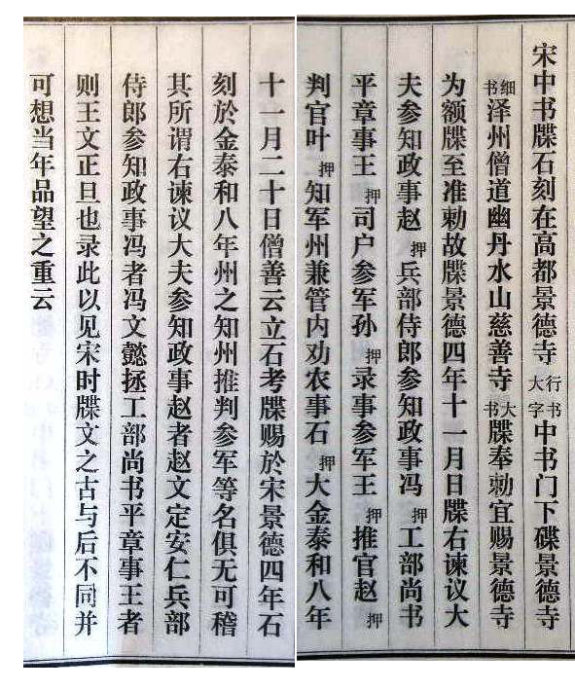 宋中书牒石刻在高都景德寺行书大字中书门下碟景德寺
细书泽州僧道幽丹水山慈善寺大书牒奉勅宜赐景德寺
为额牒至准勅故牒景德四年十一月日牒右谏议大
夫参知政事赵押兵部侍郎参知政事冯押工部尚书
平章事王押司户参军孙押录事参军王押推官赵押
判官叶押知军州兼管内劝农事石押大金泰和八年
十一月二十日僧善云立石考牒赐於宋景德四年石
刻於金泰和八年州之知州推判参军等名俱无可稽
其所谓右谏议大夫参知政事赵者赵文定安仁兵部
侍郎参知政事冯者冯文懿拯工部尚书平章事王者
则王文正旦也录此以见宋时牒文之古与后不同并
可想当年品望之重云